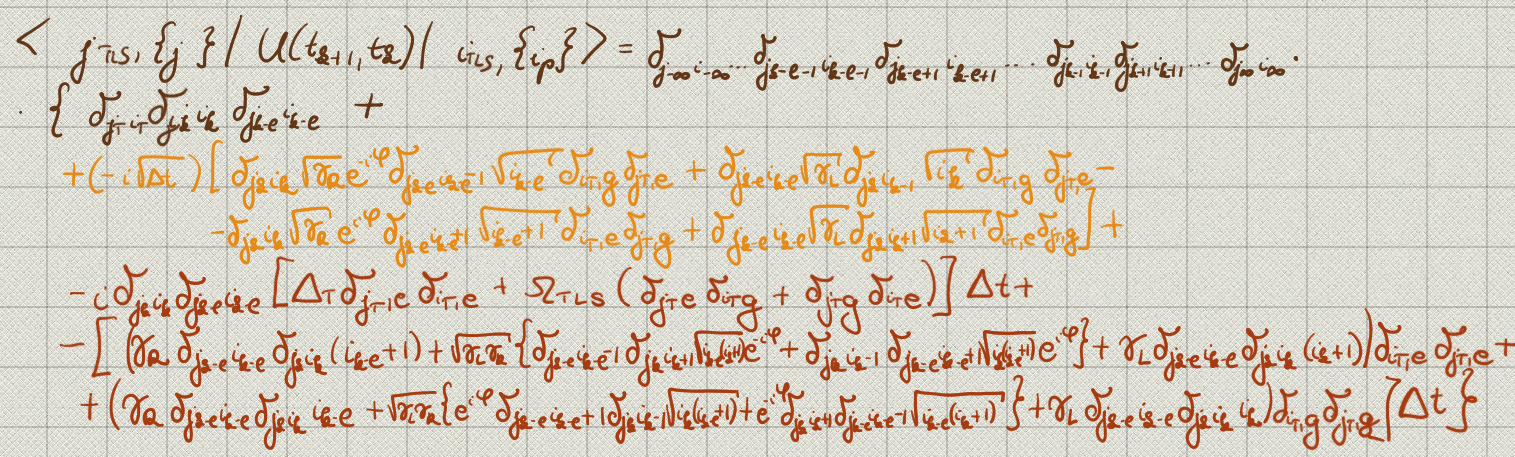 < j_{TLS}, {j} / U(t_{k+1}, t_k) / i_{TLS}, {i_p} > = δ_{j-∞ i-∞} ... δ_{jk-e-1 ik-e-1} δ_{jk-e+1 ik-e+1} ... δ_{jk-1 ik-1} δ_{jk+1 ik+1} ... δ_{j∞ i∞} .
. { δ_{jT iT} δ_{jk ik} δ_{jk-e ik-e} +
+ (-i√Δt) [ δ_{jk ik} √γ_R e^{-iφ} δ_{jk-e ik-e-1} √i_{k-e} δ_{iT,g} δ_{jT,e} + δ_{jk-e ik-e} √γ_L δ_{jk ik-1} √i_k δ_{iT,g} δ_{jT,e} -
- δ_{jk ik} √γ_R e^{iφ} δ_{jk-e ik-e+1} √i_{k-e}+1 δ_{iT,e} δ_{jT,g} + δ_{jk-e ik-e} √γ_L δ_{jk ik+1} √i_k+1 δ_{iT,e} δ_{jT,g} ] +
- i δ_{jk ik} δ_{jk-e ik-e} [ Δ_T δ_{jT,e} δ_{iT,e} + Ω_{TLS} ( δ_{jT e} δ_{iT g} + δ_{jT g} δ_{iT e} ) ] Δt +
- [ ( γ_R δ_{jk-e ik-e} δ_{jk ik} (i_{k-e}+1) + √γ_Lγ_R { δ_{jk-e ik-e-1} δ_{jk ik+1} √i_{k-e}(i_k+1) e^{-iφ} + δ_{jk ik-1} δ_{jk-e ik-e+1} √i_k(i_{k-e}+1) e^{iφ} } + γ_L δ_{jk-e ik-e} δ_{jk ik} (i_k+1) ) δ_{iT,e} δ_{jT,e} +
+ ( γ_R δ_{jk-e ik-e} δ_{jk ik} i_{k-e} + √γ_Lγ_R { e^{iφ} δ_{jk-e ik-e+1} δ_{jk ik-1} √i_k(i_{k-e}+1) + e^{-iφ} δ_{jk ik+1} δ_{jk-e ik-e-1} √i_{k-e}(i_k+1) } + γ_L δ_{jk-e ik-e} δ_{jk ik} i_k ) δ_{iT,g} δ_{jT,g} ] Δt }